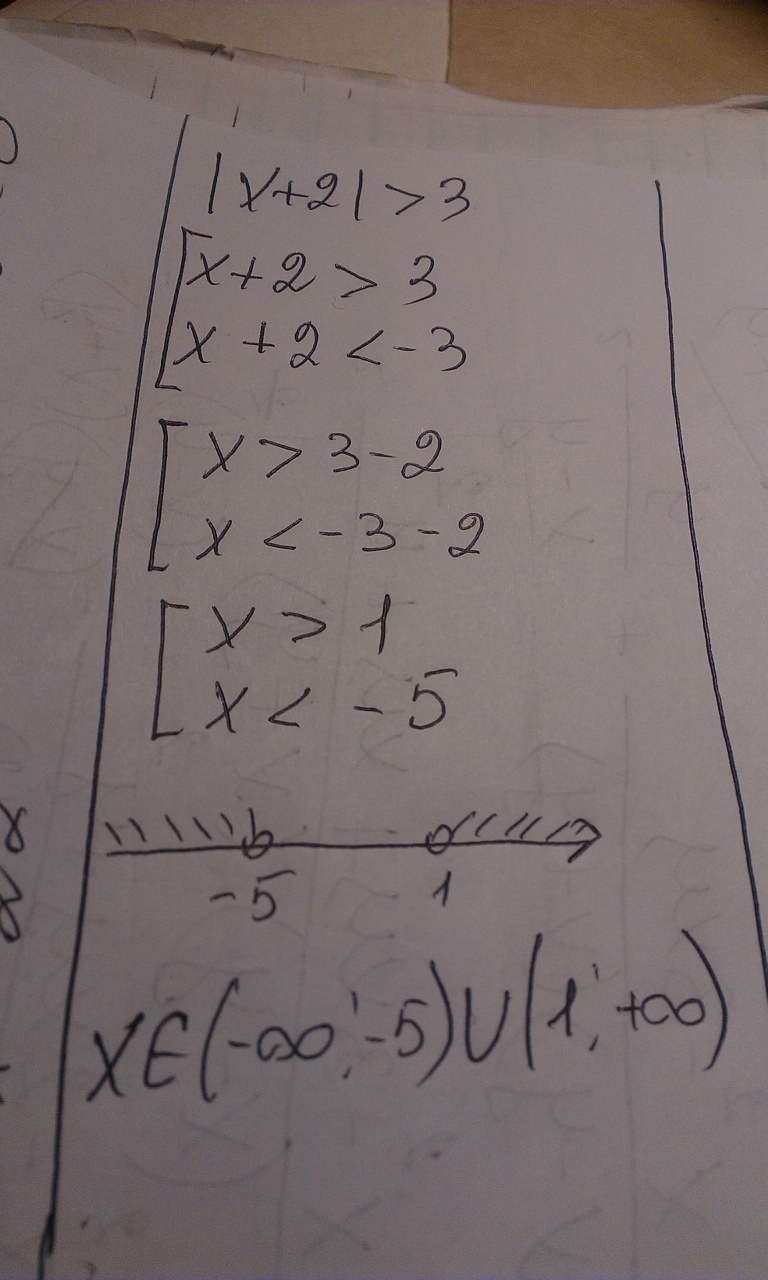 |x+2|>3
[x+2 > 3
x+2 <-3
[x > 3-2
x < -3-2
[x > 1
x < -5
-5 1
x∈(-∞;-5)∪(1;+∞)